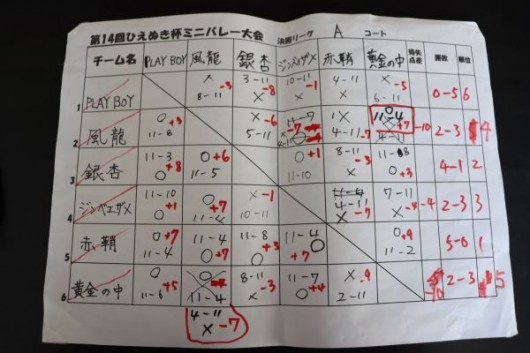 第14回ひえぬき杯ミニバレー大会 決勝リーグ A コート
チーム名 PLAY BOY 風龍 銀杏 ジンベエザメ 赤鞘 黄金の中 得失点差 勝敗 順位
1 PLAY BOY × 8-11 -3 3-11 × -8 10-11 × -1 4-11 × × 6-11 -5 0-5 6
2 風龍 ○ 11-8 +3 × 5-11 -6 4-11 -7 × 4-11 -7 ○ 11-4 +7 -10 2-3 4
3 銀杏 11-3 ○ +8 ○ 11-5 +6 ○ 11-10 +1 8-11 × -3 11-8 ○ +3 4-1 2
4 ジンベエザメ 11-10 ○ +1 ○ 11-4 +7 × 10-11 -1 4-11 × -7 7-11 × -4 -4 2-3 3
5 赤鞘 ○ 11-4 +7 ○ 11-4 +7 11-8 ○ +3 11-4 ○ +7 ○ 11-2 +9 5-0 1
6 黄金の中 ○ 11-6 +5 11-4 8-11 × -3 11-7 ○ +4 × 2-11 -9 2-3 5
4-11
× -7